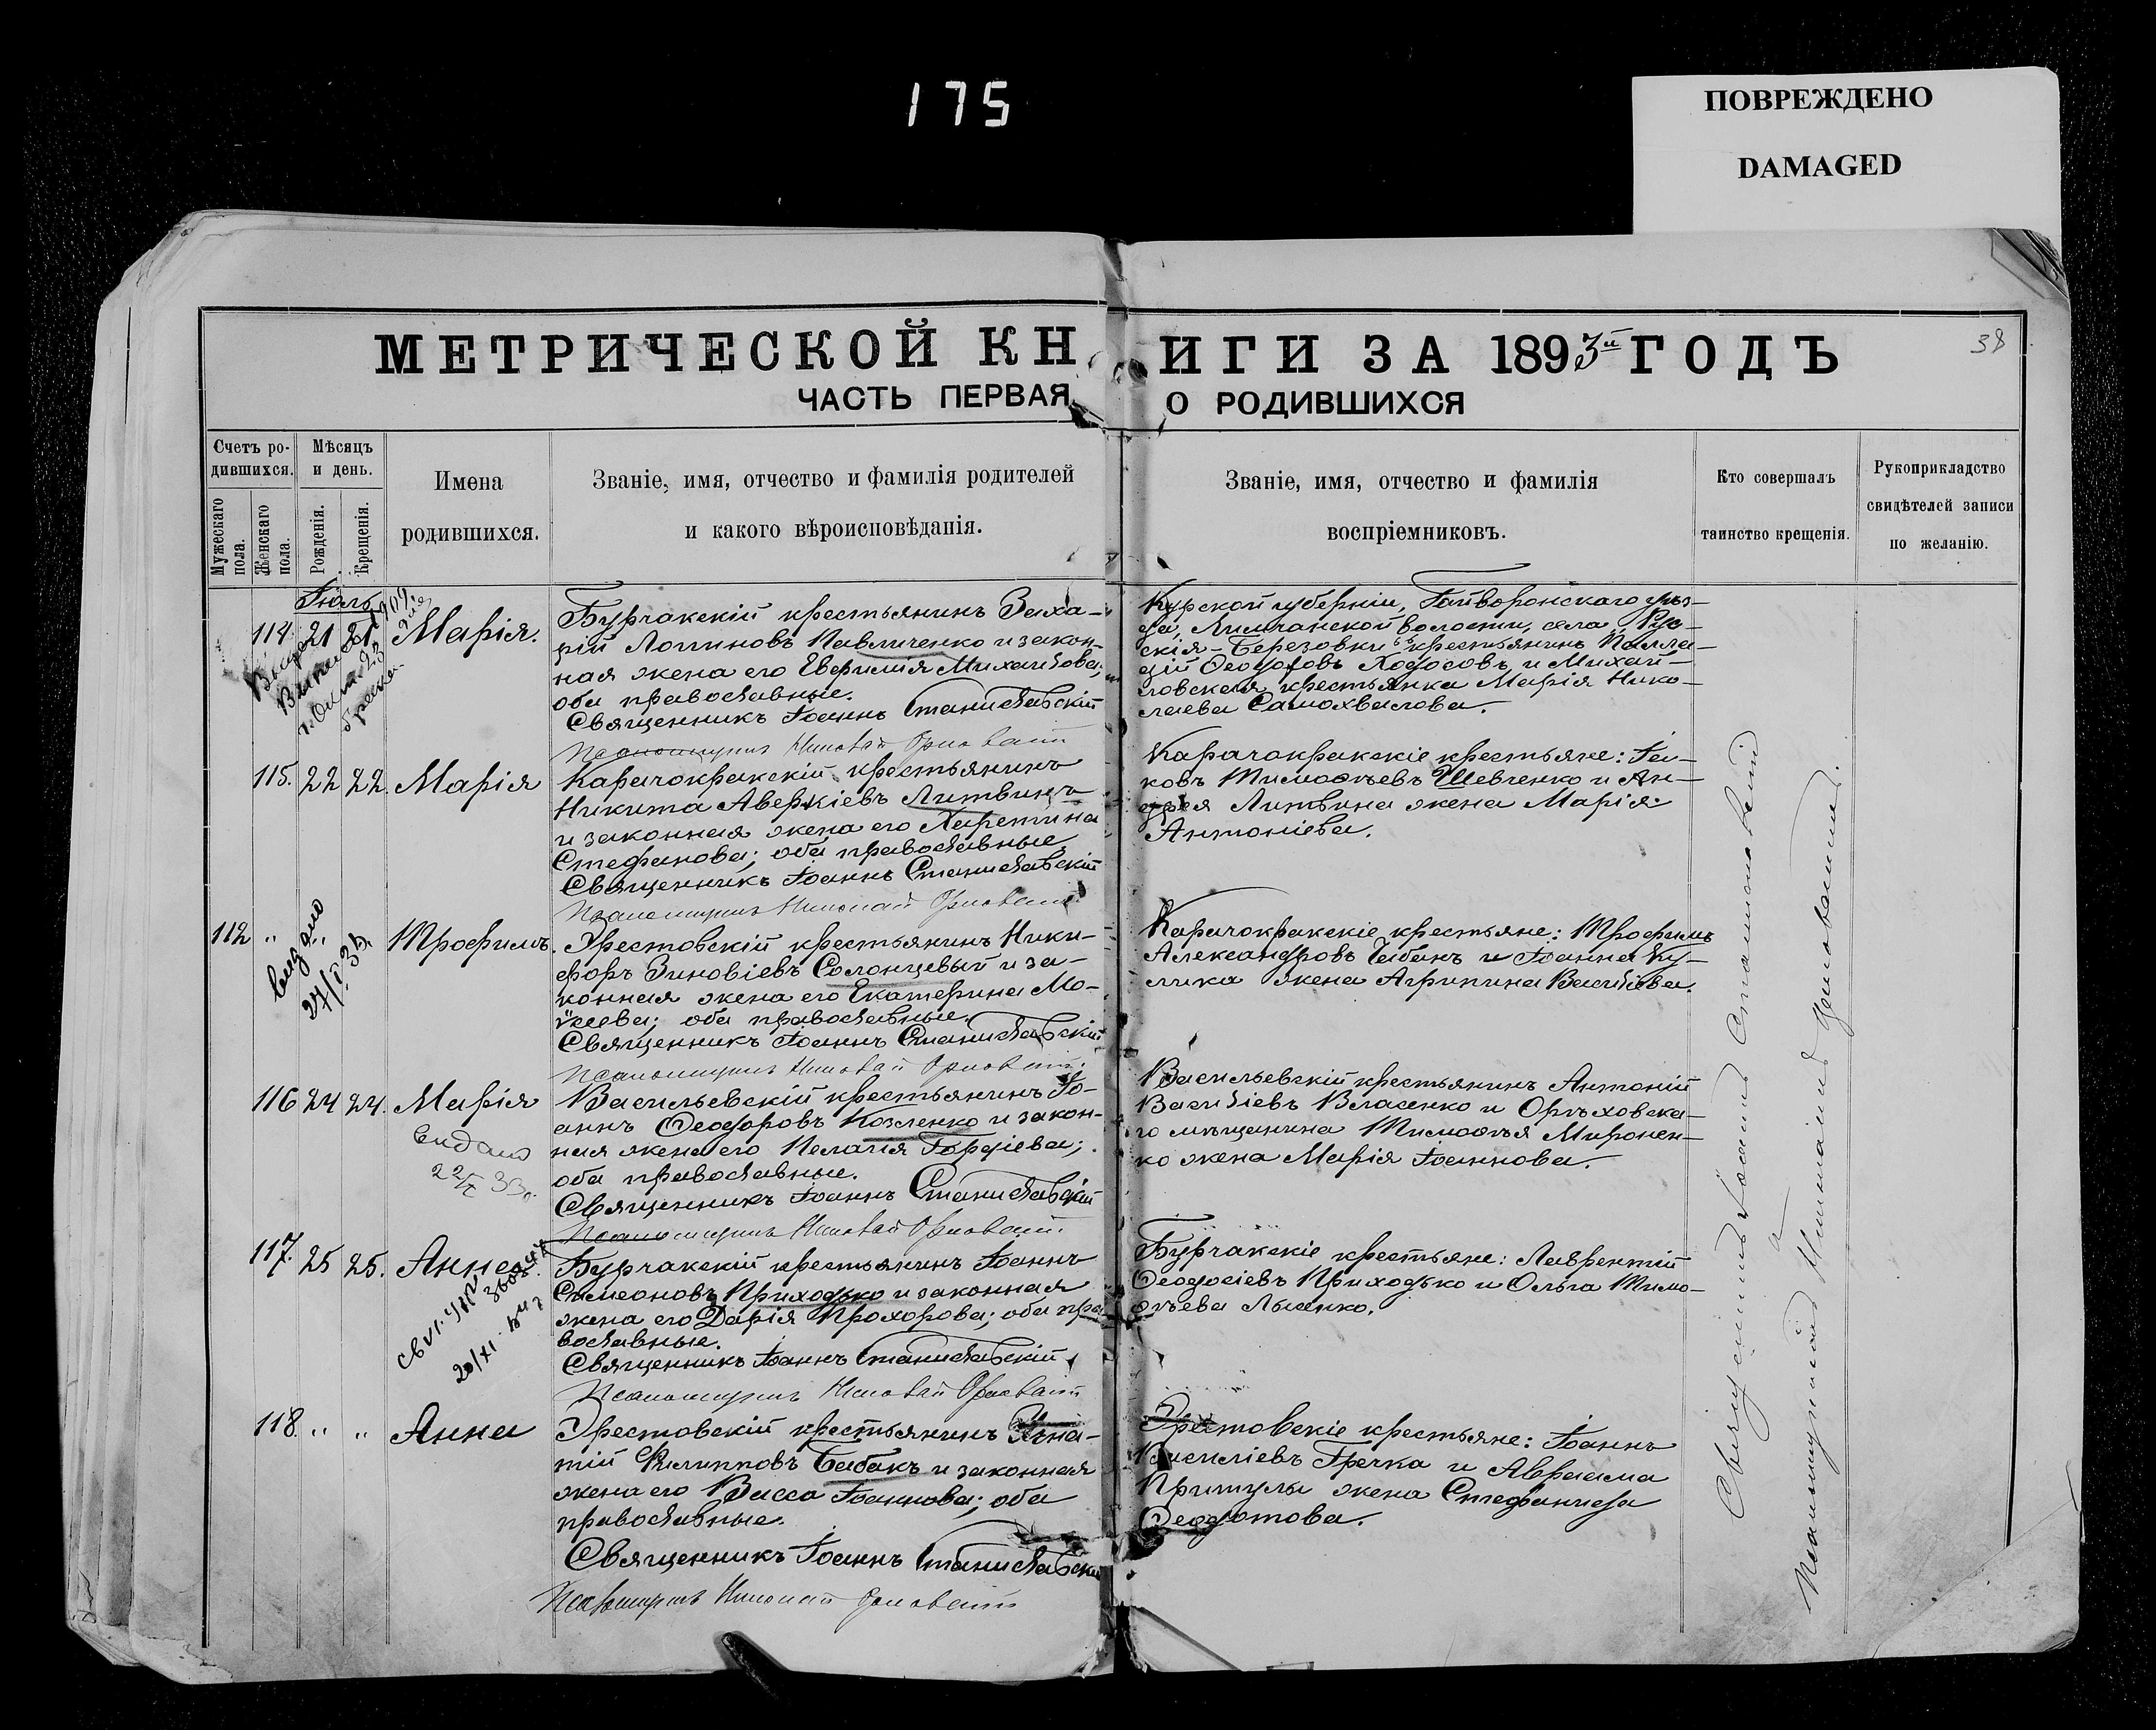 175
ПОВРЕЖДЕНО
DAMAGED
38
МЕТРИЧЕСКОЙ КНИГИ ЗА 1893й ГОДЪ
ЧАСТЬ ПЕРВАЯ, О РОДИВШИХСЯ
Счетъ родившихся.
Мужескаго пола.
Женскаго пола.
Мѣсяцъ и день.
Рожденія.
Крещенія.
Имена
родившихся.
Званіе, имя, отчество и фамилія родителей
и какого вѣроисповѣданія.
Званіе, имя, отчество и фамилія
воспріемниковъ.
Кто совершалъ
таинство крещенія.
Рукоприкладство
свидѣтелей записи
по желанію.
Іюль
114. 21 21. Марія.
Бурчакскій крестьянинъ Заха-
рій Логиновъ Павличенко и закон-
ная жена его Евфимія Михаилова;
оба православные.
Священникъ Іоаннъ Станиславскій
Псаломщикъ Николай
Курской губерніи, Гайворонскаго уѣз-
да, волости, села Рус-
скія-Березовки крестьянинъ Палла-
дій Ѳеодоровъ и Михай-
ловская крестьянка Марія Нико-
лаева Самохвалова.
115. 22 22. Марія
Карачокракскій крестьянинъ
Никита Аверкіевъ Литвинъ
и законная жена его Харитина
Стефанова; оба православные.
Священникъ Іоаннъ Станиславскій
Псаломщикъ Николай
Карачокракскіе крестьяне: Іа-
ковъ Тимоѳѣевъ Шевченко и Ан-
дрея Литвина жена Марія
Антоніева.
112 " " " Трофимъ.
видано
Эрестовскій крестьянинъ Ники-
форъ Зиновіевъ Солонцевый и за-
конная жена его Екатерина Мо-
кеева; оба православные.
Священникъ Іоаннъ Станиславскій
Псаломщикъ Николай
Карачокракскіе крестьяне: Трофимъ
Александровъ Чабанъ и Іоанна Ку-
лика жена Агрипина Василіева.
116 24 24. Марія
видано
22/ 33
Васильевскій крестьянинъ Іо-
аннъ Ѳеодоровъ Козленко и закон-
ная жена его Пелагія Гордіева;
оба православные.
Священникъ Іоаннъ Станиславскій
Псаломщикъ Николай
Васильевскій крестьянинъ Антоній
Василіевъ Власенко и Орѣховска-
го мѣщанина Тимоѳѣя Миронен-
ко жена Марія Іоаннова.
117. 25 25. Анна.
20/XI
Бурчакскій крестьянинъ Іоаннъ
Симеоновъ Приходько и законная
жена его Дарія Прохорова; оба пра-
вославные.
Священникъ Іоаннъ Станиславскій
Псаломщикъ Николай
Бурчакскіе крестьяне: Лаврентій
Ѳеодосіевъ Приходько и Ольга Тимо-
ѳѣева Лысенко.
118. " " Анна
Эрестовскій крестьянинъ Игна-
тій Филипповъ Бабакъ и законная
жена его Васса Іоаннова; оба
православные.
Священникъ Іоаннъ Станиславскій
Псаломщикъ Николай
Эрестовскіе крестьяне: Іоаннъ
Василіевъ Гречка и Авраама
Притулы жена Стефанида
Ѳеодотова.
Священникъ Іоаннъ Станиславскій
и
Псаломщикъ Николай